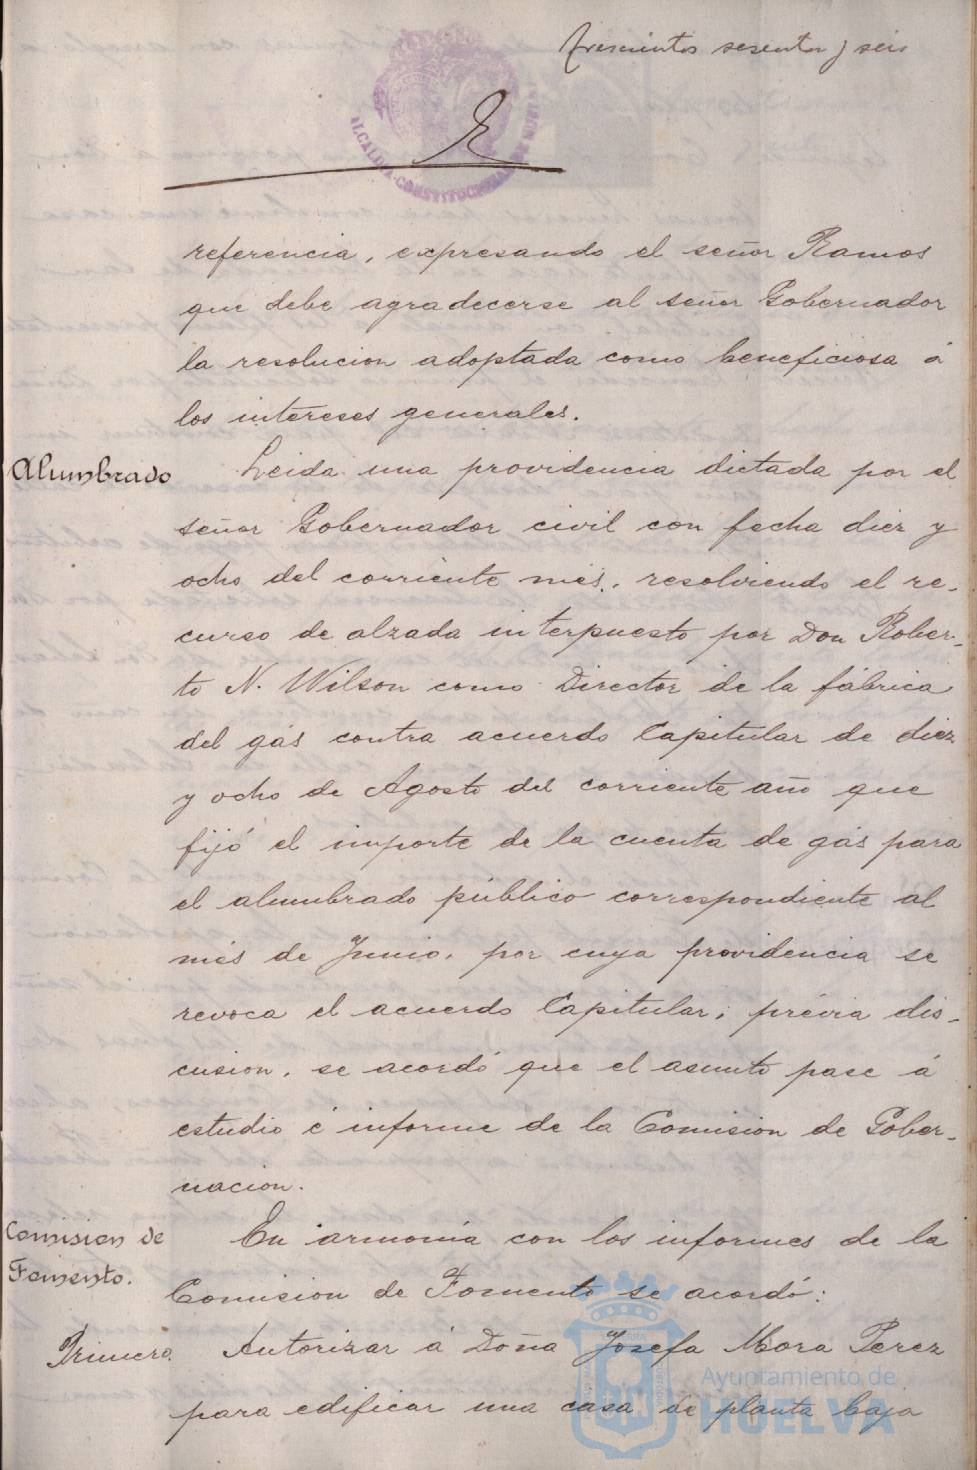 trescientos sesenta y seis
ALCALDIA CONSTITUCIONAL DE HUELVA
referencia, expresando el señor Ramos
que debe agradecerse al señor Gobernador
la resolucion adoptada como beneficiosa á
los intereses generales.
Alumbrado
Leida una providencia dictada por el
señor Gobernador civil con fecha diez y
ocho del corriente més, resolviendo el re-
curso de alzada interpuesto por Don Rober-
to N. Wilson como Director de la fábrica
del gás contra acuerdo Capitular de diez
y ocho de Agosto del corriente año que
fijó el importe de la cuenta de gás para
el alumbrado público correspondiente al
més de Junio, por cuya providencia se
revoca el acuerdo Capitular; prévia dis-
cusion, se acordó que el asunto pase á
estudio é informe de la Comision de Gober-
nacion.
Comision de
Fomento.
En armonía con los informes de la
Comision de Fomento se acordó:
Primero.
Autorizar á Doña Josefa Mora Perez
para edificar una casa de planta baja
Ayuntamiento de
HUELVA